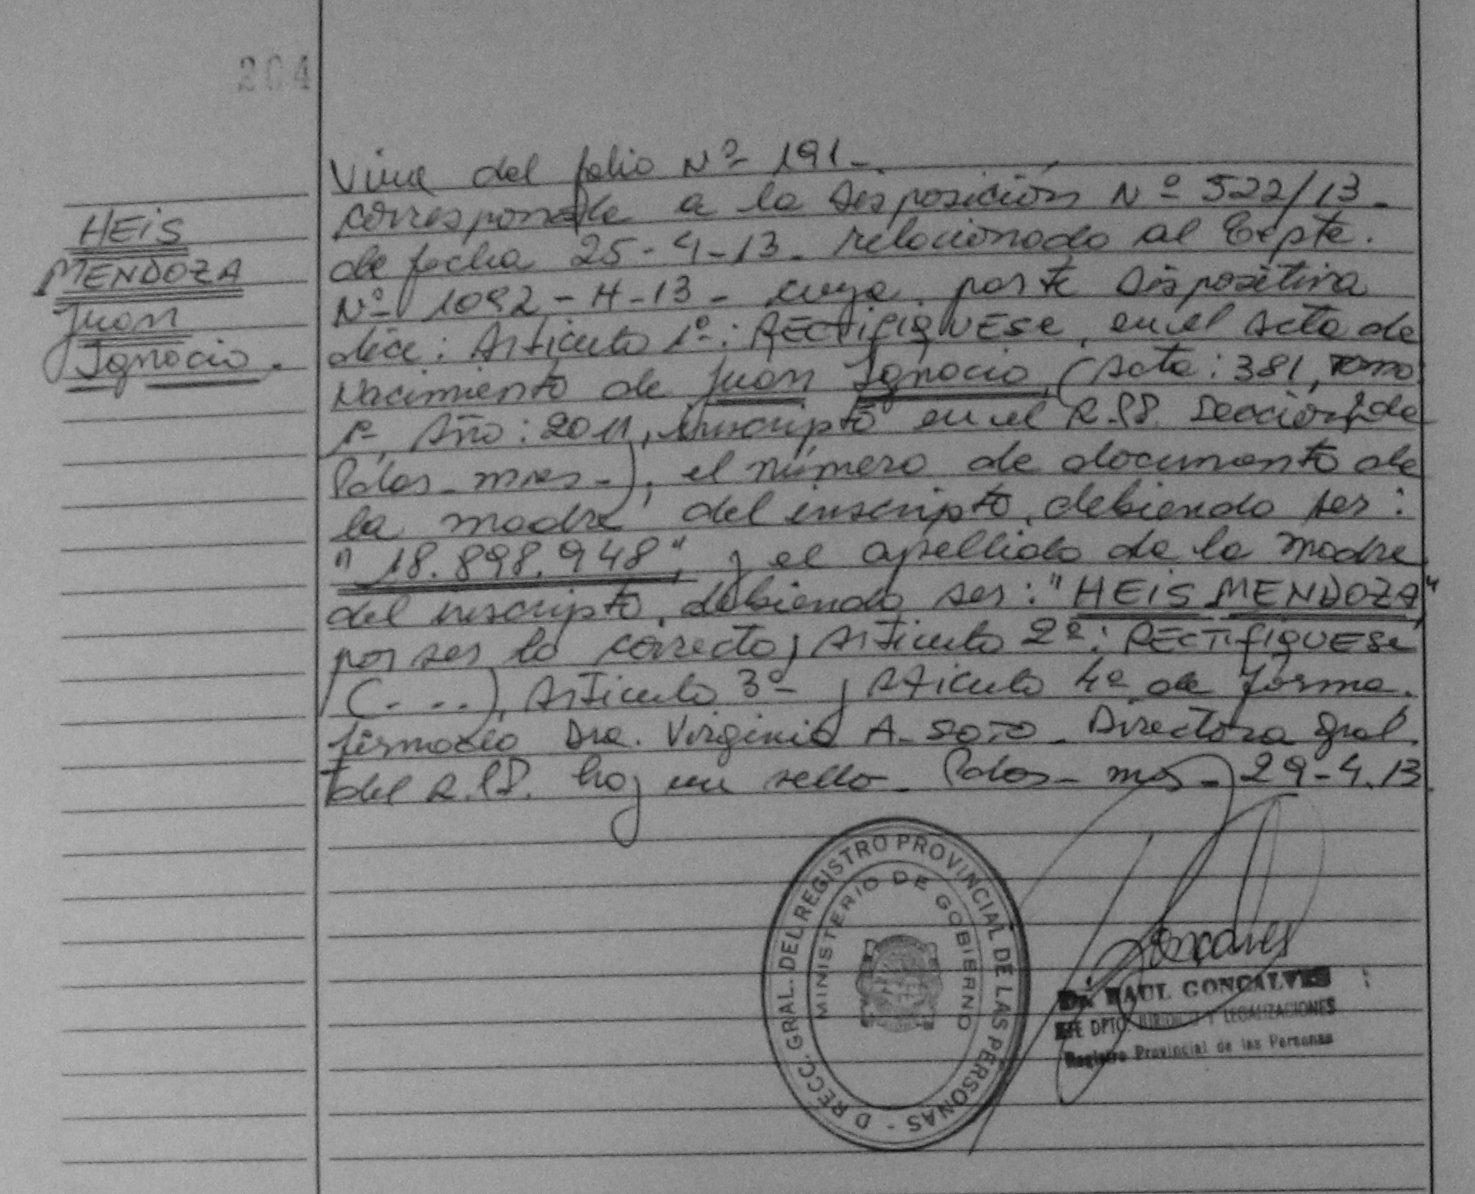 204
HEIS
MENDOZA
Juan
Ignacio.
Viene del folio Nº 191-
corresponde a la Disposición Nº 522/13-
de fecha 25-4-13- relacionado al Expte.
Nº 1092-H-13- cuya parte dispositiva
dice: Articulo 1º: RECTIFIQUESE, en el acta de
Nacimiento de Juan Ignacio, (Acta: 381, Tomo
1º, Año: 2011, inscripto en el R.P.P. Sección 1º de
Pdas-mnes-), el número de documento de
la madre del inscripto, debiendo ser:
"18.898.948", y el apellido de la madre
del inscripto, debiendo ser: "HEIS MENDOZA"
por ser lo correcto, Articulo 2º: RECTIFIQUESE
(...), Articulo 3º y Articulo 4º de forma.
firmado Dra. Virginia A. SOTO- Directora Gral.
del R.P.P. hay un sello- Pdas-mns- 29-4.13
DIRECC. GRAL. DEL REGISTRO PROVINCIAL DE LAS PERSONAS -
MINISTERIO DE GOBIERNO
Goncalves
Dr. RAUL GONCALVES
JEFE DPTO. JURIDICO Y LEGALIZACIONES
Registro Provincial de las Personas